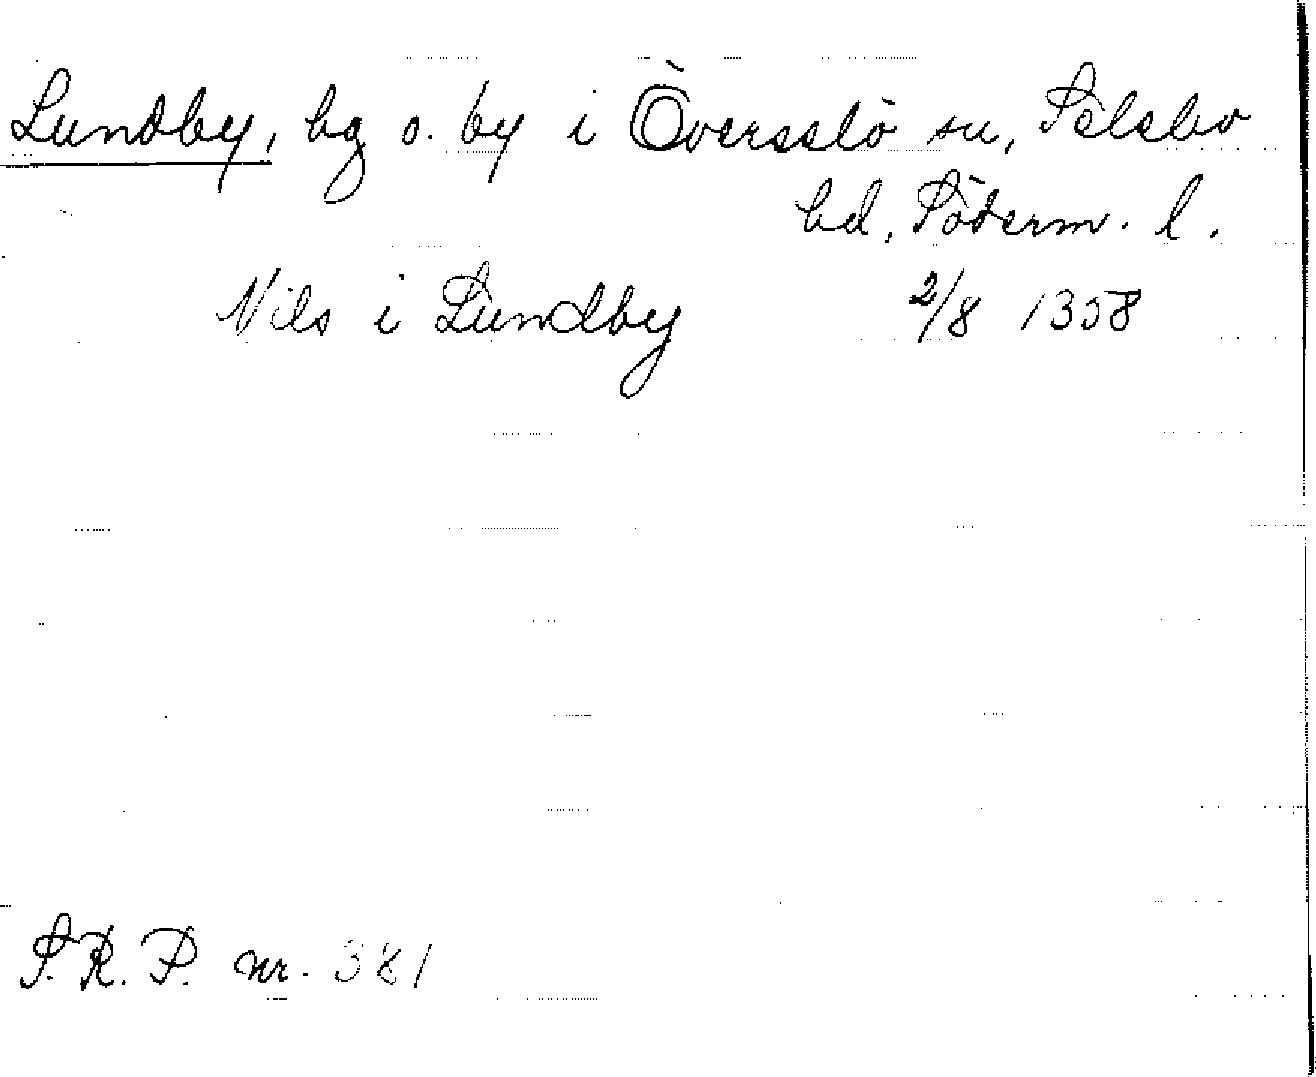 Lundby, hg o. by i Överselö sn, Selebo
hd, Söderm. l.
Nils i Lundby 2/8 1358
S.R.P. nr. 381